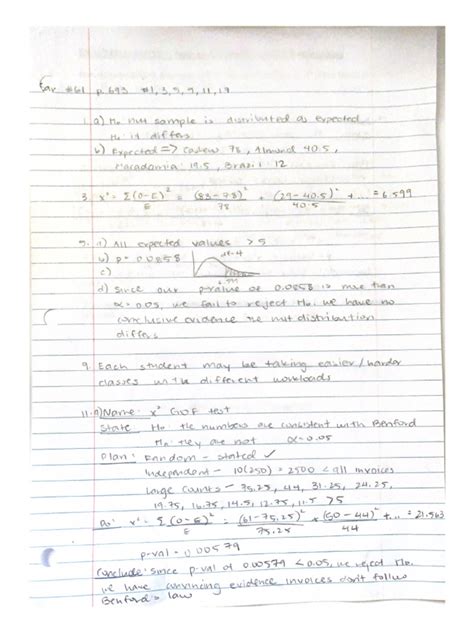 #61 p. 693 #1, 3, 5, 9, 11, 19
1. a) Ho: nut sample is distributed as expected
Ha: it differs
b) Expected => Cashew 78, Almond 40.5,
Macadamia 19.5, Brazil 12
3. x² = Σ(O-E)²/E = (83-78)²/78 + (29-40.5)²/40.5 + ... = 6.599
a) All expected values > 5
b) p = 0.0858
df=4
c)
d) Since our p-value of 0.0858 is more than
α = 0.05, we fail to reject Ho. We have no
conclusive evidence the nut distribution
differs
9. Each student may be taking easier/harder
classes with different workloads
11. a) Name: x² GOF test
State Ho: the numbers are consistent with Benford
Ha: they are not α=0.05
Plan: Random - stated ✓
Independent - 10(250) = 2500 < all invoices
Large Counts - 75.25, 44, 31.25, 24.25,
19.75, 16.75, 14.5, 12.75, 11.5 > 5
Do: x² = Σ(O-E)²/E = (61-75.25)²/75.25 + (50-44)²/44 + ... = 21.563
p-val = 0.00579
Conclude: Since p-val of 0.00579 < 0.05, we reject Ho.
we have convincing evidence invoices don't follow
Benford's law